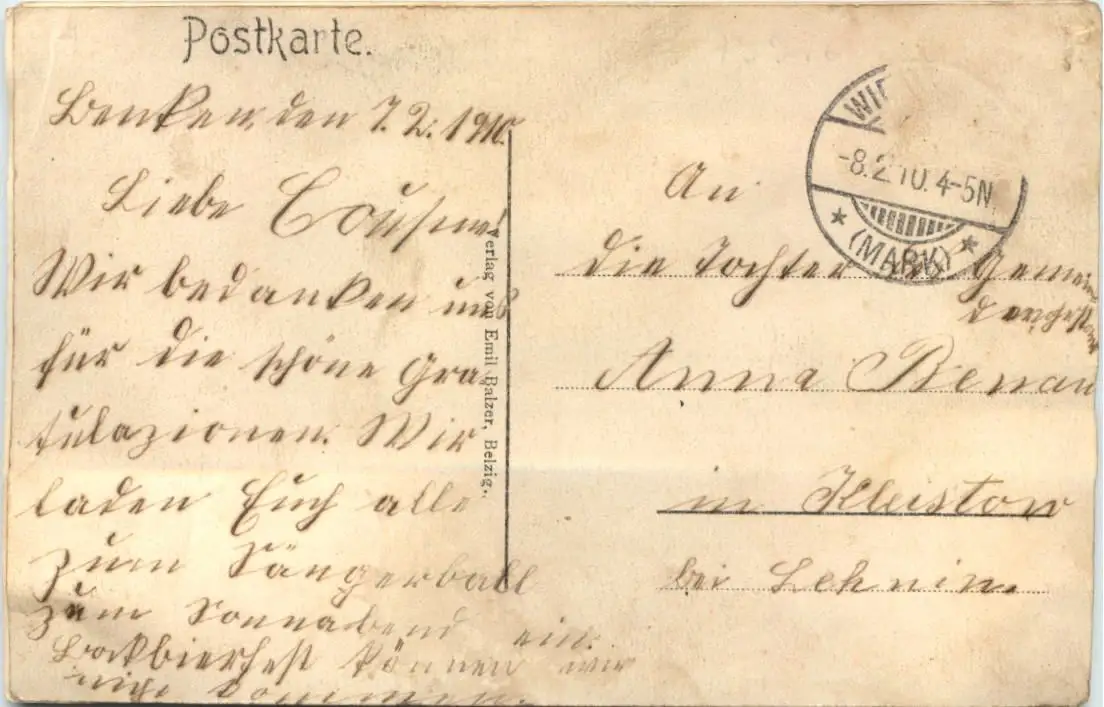 Postkarte.
Benken, den 7.2.1910.
Liebe Cousine!
Wir bedanken uns
für die schöne Gra-
tulazionen. Wir
laden Euch alle
zum Sängerball
zum Sonnabend ein.
Bockbierfest können wir
nicht kommen.
Verlag von Emil Balzer, Belzig.
-8.2.10.4-5N.
(MARK)
An
die Tochter Gemein
Anna Benau
in Kleistow
bei Lehnin.